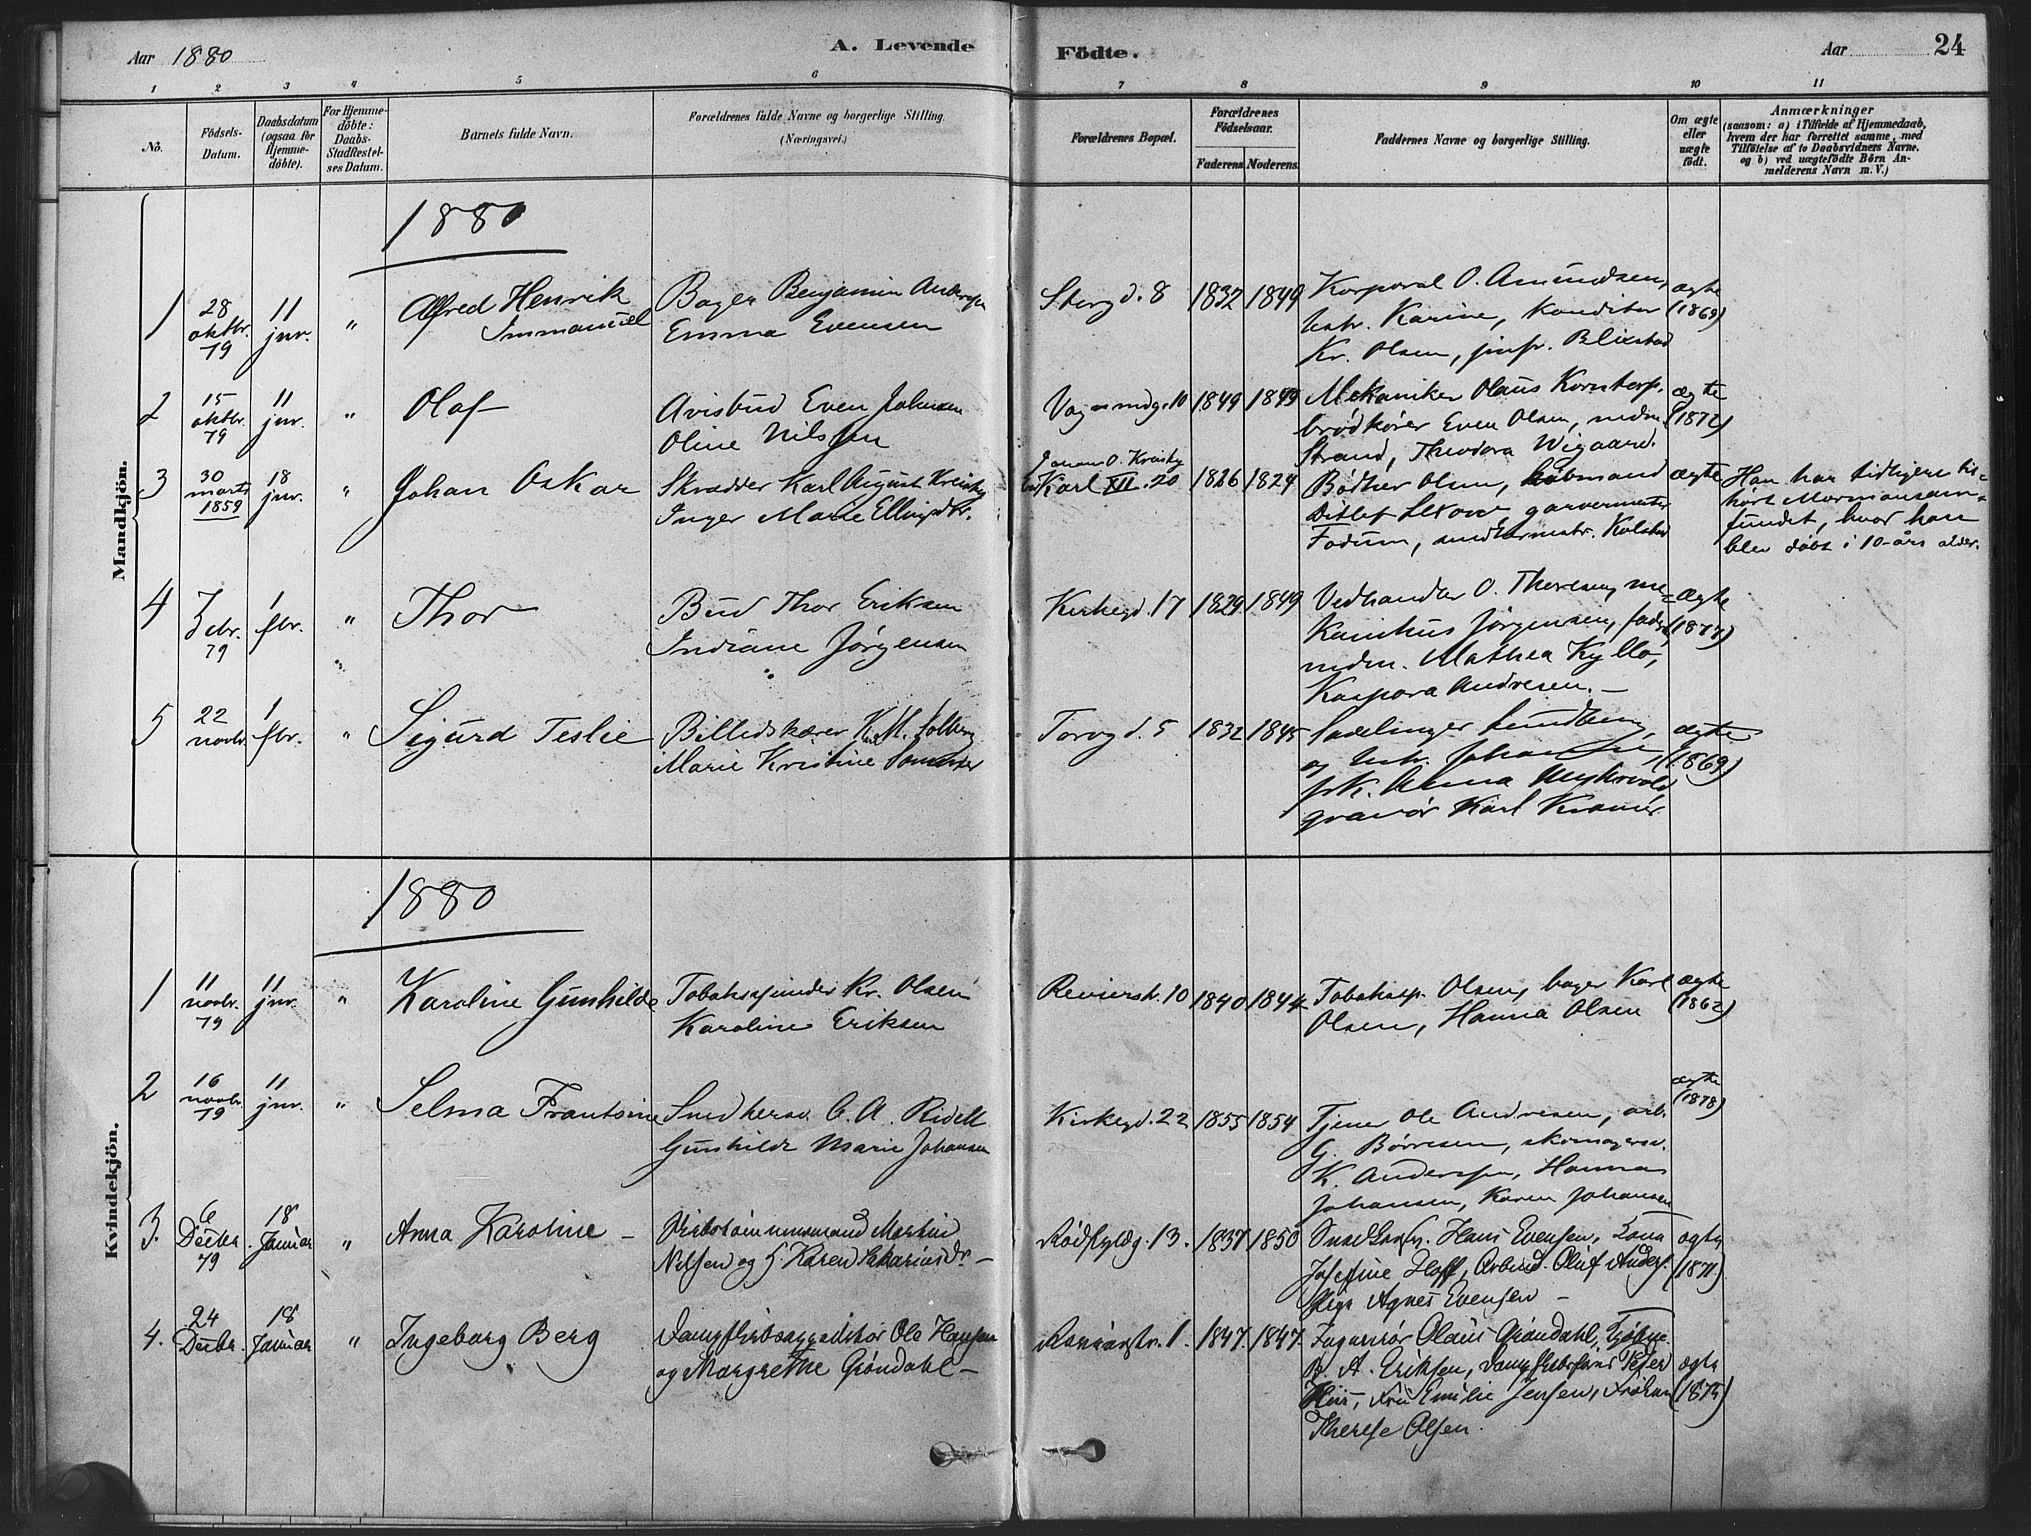 Aar 1880
A. Levende
Födte.
Aar
24
1 2 3 4 5 6 7 8 9 10 11
No.
Födsels-
Datum.
Daabsdatum
(ogsaa for
Hjemme-
döbte).
For Hjemme-
döbte:
Daabs-
Stadfæstel-
ses Datum.
Barnets fulde Navn.
Forældrenes fulde Navne og borgerlige Stilling.
(Næringsvei.)
Forældrenes Bopæl.
Forældrenes
Födselsaar.
Faderens. Moderens.
Faddernes Navne og borgerlige Stilling.
Om ægte
eller
uægte
födt.
Anmærkninger
(saasom: a) i Tilfælde af Hjemmedaab,
hvem der har forrettet samme, med
Tilföielse af to Daabsvidners Navne.
og b) ved uægtefödte Börn An-
melderens Navn m. V.)
Mandkjön.
1880
1
28
oktbr.
79
11
jnr.
"
Alfred Henrik
Immanuel
Bager Benjamin Andersen
Emma Evensen
Storgd. 8
1832
1849
Korporal O. Amundsen,
hstr. Karine, Konditor
Kr. Olsen, jmfr. Blixstad
ægte
(1869)
2
15
oktbr.
79
11
jnr.
"
Olaf
Avisbud Even Johnsen
Oline Nilssen
Vognmdg. 10
1849
1849
Mekaniker Olaus Korntorp.
brødkører Even Olsen, mdm
Strand, Theodora Wigaard.
ægte
(1872)
3
30
marts
1859
18
jnr.
"
Johan Oskar
Skrædder Karl August Kreisby
Inger Marie Ellingsdtr.
Karl XII. 20
1826
1824
Bødker Olsen, købmand
Ditlef garvermester
Fodum, snedkermstr. Kolstad
ægte
Han har tidligere til-
hørt Mormonsam-
fundet, hvor han
blev døbt i 10-års alder.
4
7
79
1
fbr.
"
Thor
Bud Thor Eriksen
Indiane Jørgensen
Kirkegd. 17
1829
1849
Vedhandler O. Thoresen, me-
Kanikus Jørgensen, fader,
mdm. Mathea Kyllo,
Kaspara Andresen. -
ægte
(1877)
5
22
novbr.
1
fbr.
"
Sigurd Teslie
Billedskærer Karl M. Solberg
Marie Kristine
Torvgd. 5
1832
1845
Lundberg,
og hstr.
frk. Anna
gravør Karl
ægte
(1869)
Kvindekjön.
1880
1
11
novbr.
79
11
jnr.
"
Karoline Gunhilde
Tobaksspinder Kr. Olsen
Karoline Eriksen
Revierstr. 10
1840
1844
Tobaksp. Olsen, bager Karl
Olsen, Hanna Olsen
ægte
(1862)
2
16
novbr.
79
11
jnr.
"
Selma Frantsine
Smedkersv. C. A. Ridell
Gunhilde Marie Johansen
Kirkegd. 22
1855
1854
Tjener Ole Andresen, arb.
G. Børresen, skomagersv.
K. Anderssen, Hanna
Johansen, Karen Johansen
ægte
(1878)
3.
6
Decbr
79
18
Januar
"
Anna Karoline -
Martin
Nilsen og H. Karen Sakariasdr. -
Rødfyldg. 13.
1837
1850
Hans Evensen, Lona
Josefine Hoff, Arbmd. Oluf Anders.
Pige Agnes Evensen -
ægte
(1871)
4.
24
Decbr.
18
Januar
"
Ingeborg Berg
Ole Hansen
og Margrethe Grøndahl -
1.
1847.
1847.
Olaus Grøndahl,
A. Eriksen, Peter
Frü Emilie Jensen, Frøken
Therese Olsen.
ægte
(1875)